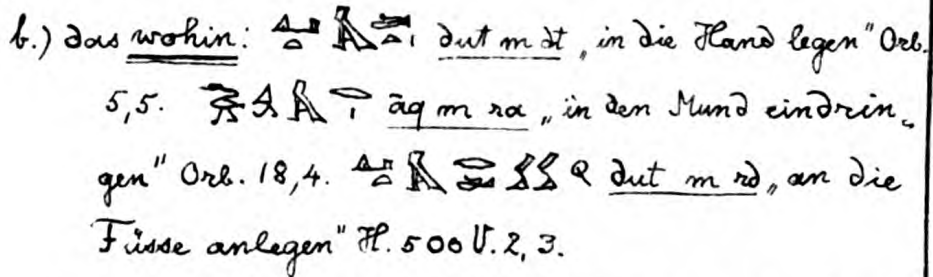 b.) das wohin: dut m dt „in die Hand legen" Orb.
5,5. āq m ra „in den Mund eindrin-
gen" Orb. 18,4. dut m rd „an die
Füsse anlegen" H. 500 V. 2, 3.